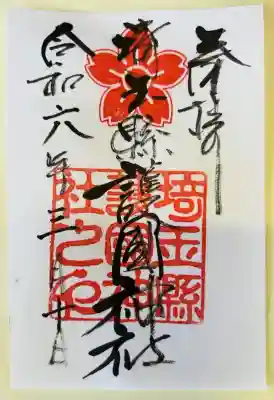 奉拝
埼玉縣護國神社
令和六年三月
埼玉縣
護國神
社之印